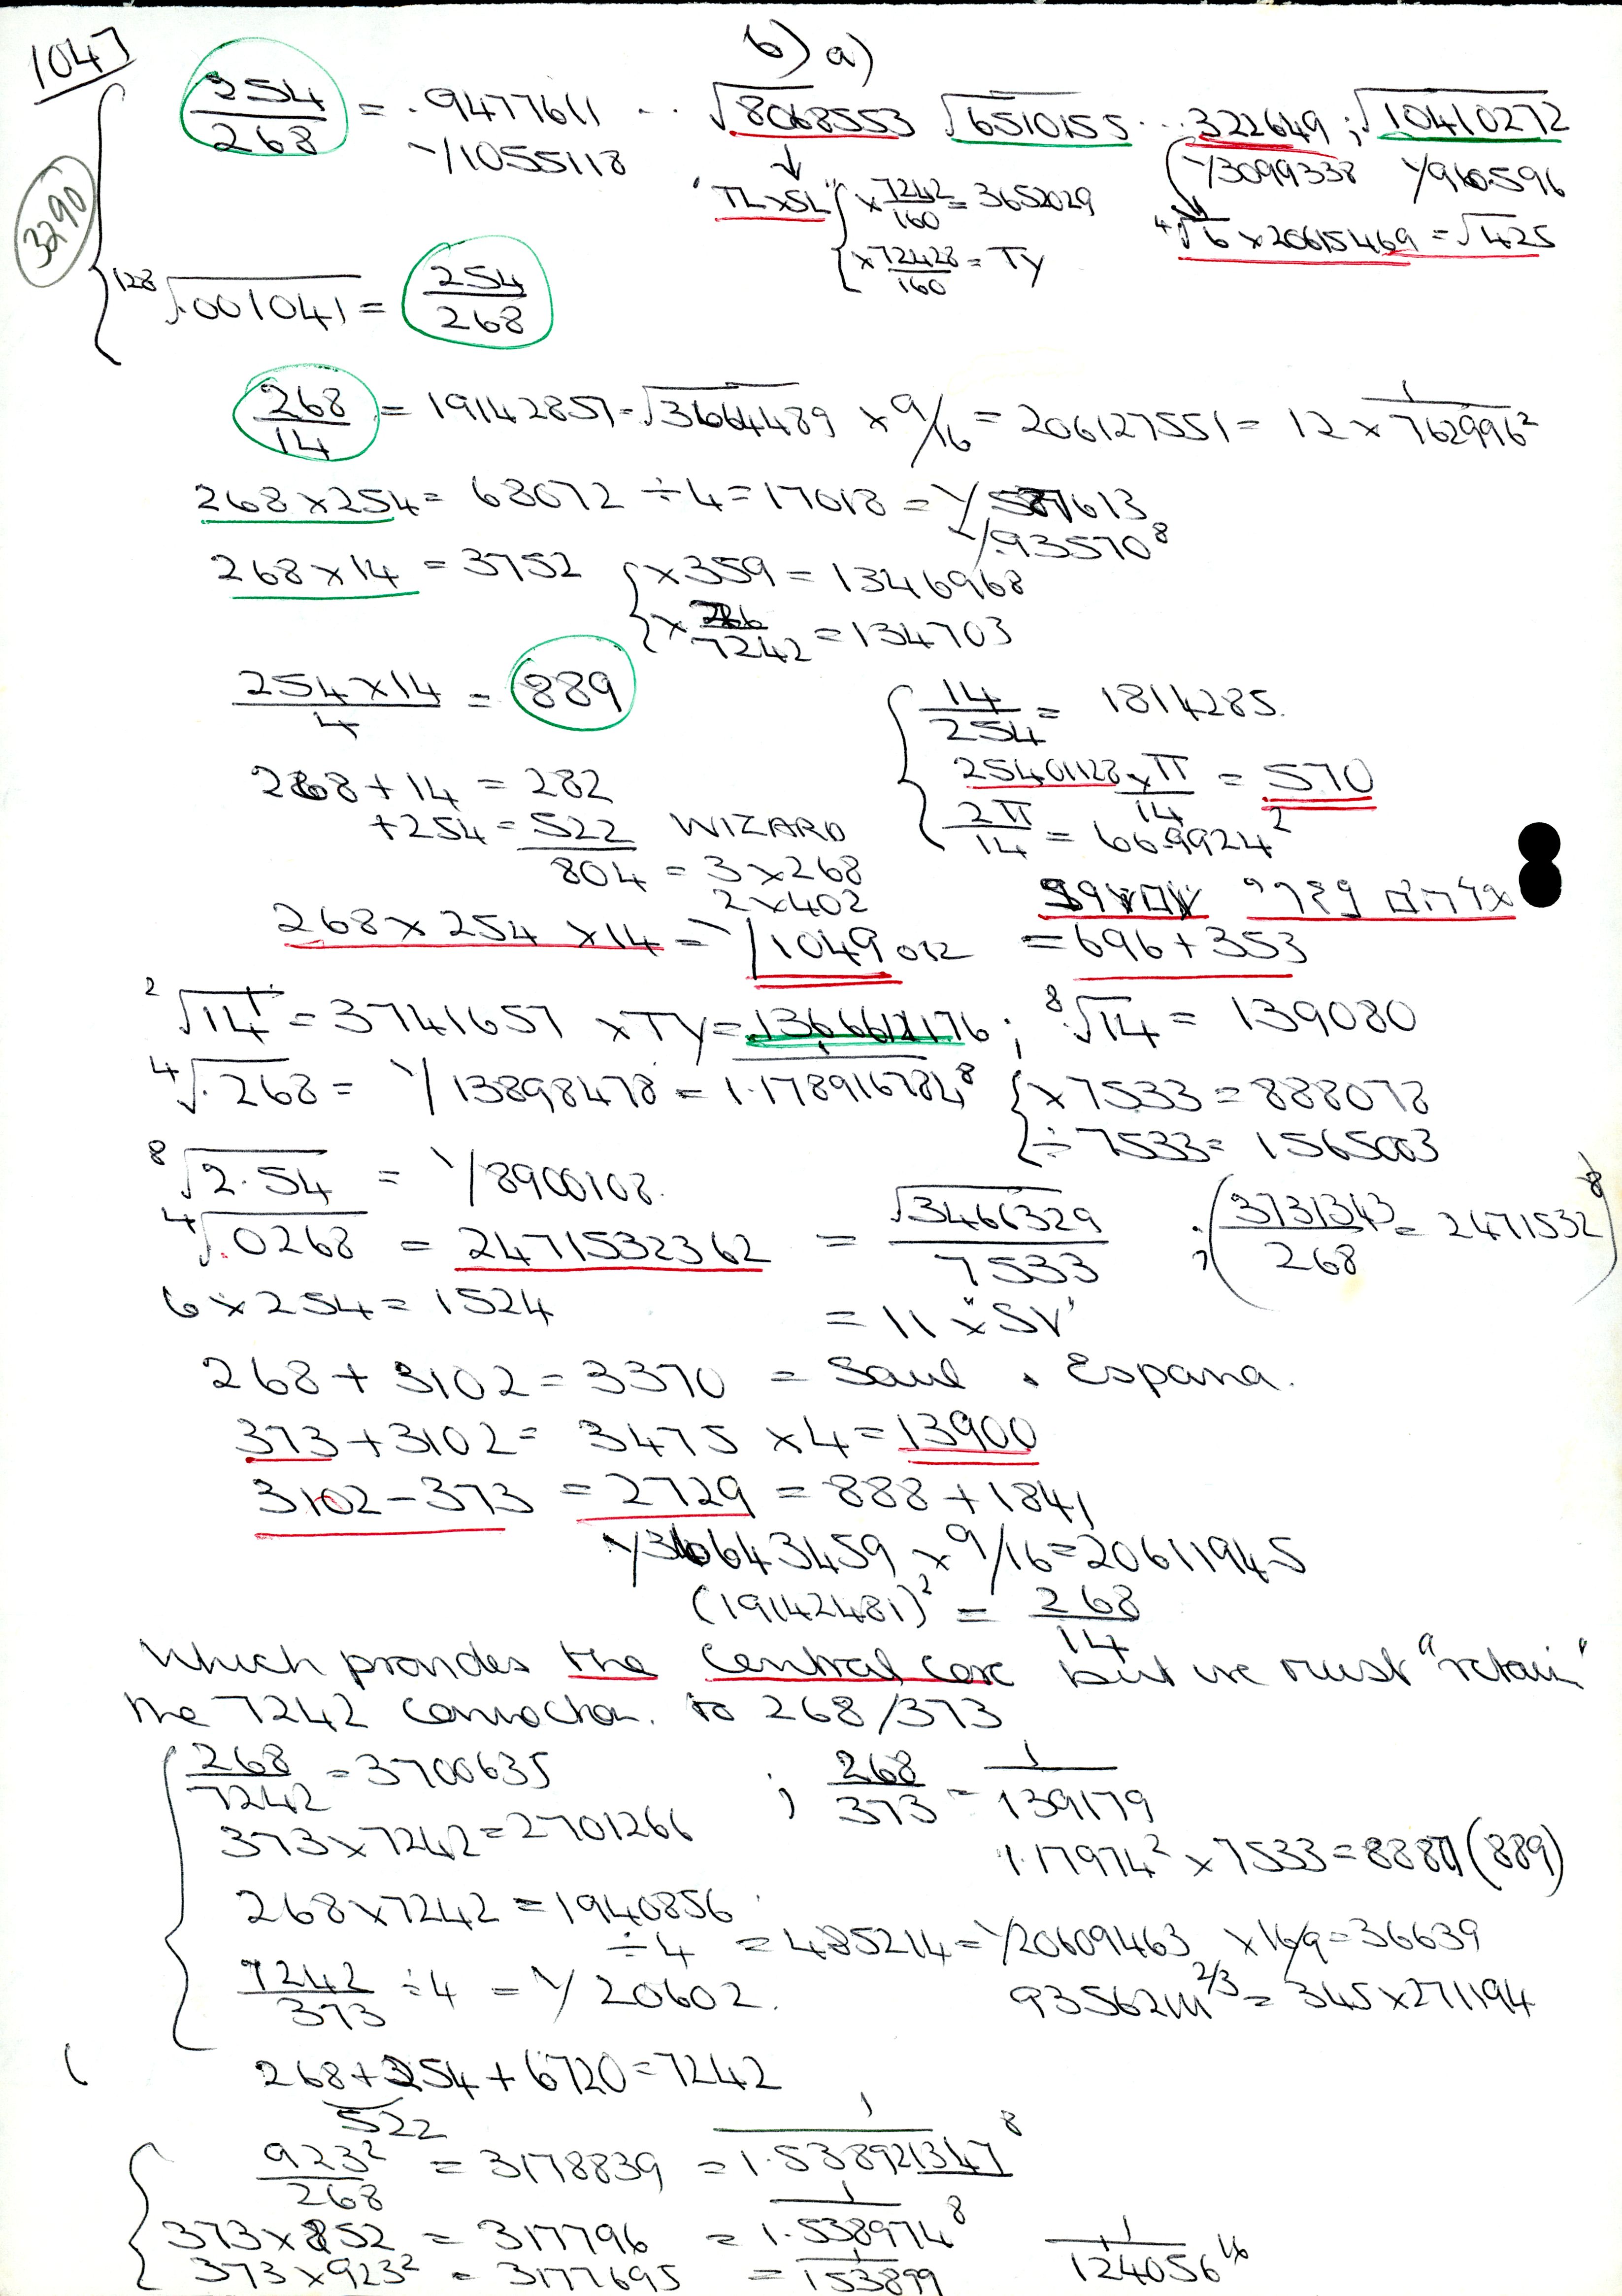 1047
b) a)
254/268 = .9477611 .. √8068553 √6510155 .. 322649 ; √10410272
1/1055118 ↓ 1/3099338 1/960596
3290
"TL×SL" { ×7242/160 = 3652029 ⁴√6 × 20615469 = √425
{ ×72428/160 = TY
¹²⁸√.001041 = 254/268
268/14 = 19142857 = √3664489 × 9/16 = 206127551 = 12 × 1/762996²
268×254 = 68072 ÷4 = 17018 = 1/587613
1/.93570⁸
268×14 = 3752 { ×359 = 1346968
/7242 = 134703
254×14/4 = 889
{ 14/254 = 1814285.
25401128×π/14 = 570
2π/14 = 66.9924²
268+14 = 282
+254 = 522 WIZARD
804 = 3×268
2×402
268×254×14 = 1/1049012 = 696+353
²√14 = 3741657 ×TY = .1366611176 ; ⁸√14 = 139080
⁴√.268 = 1/13898478 = 1.178916784⁸ { ×7533 = 888078
{ ÷7533 = 1565003
⁸√2.54 = 1/8900108.
⁴√.0268 = 2471532362 = √3466329/7533 ; (3731343/268 = 2471532⁸)
6×254 = 1524 = 11 × "SV"
268+3102 = 3370 = Saul . Espana.
373+3102 = 3475 ×4 = 13900
3102-373 = 2729 = 888+1841
1/366643459 × 9/16 = 20611945
(19142481)² = 268/14
Which provides the central core but we must "retain"
the 7242 connection. to 268/373
268/7242 = 3700635 ; 268/373 = 1/139179
373×7242 = 2701266 1.17974² × 7533 = 8887 (889)
268×7242 = 1940856
÷4 = 485214 = 1/20609463 ×16/9 = 36639
7242/373 ÷4 = 1/20602. 935621^2/3 = 345×271194
268+254+6720 = 7242
522
923²/268 = 3178839 = 1/1.538921347⁸
373×852 = 317796 = 1/1.538974⁸ 1/124056¹⁶
373×923² = 3177695 = 1/153899